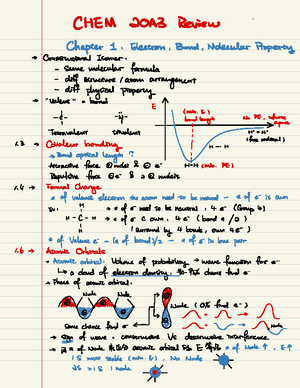 CHEM 20A3 Review
Chapter 1. Electron, Bond, Molecular Property
→ Constitutional Isomer:
- same molecular formula
- diff structure / atom arrangement
- diff physical property
→ Valent - # bond
Tetravalent
trivalent
E
(min. E)
bond length
No PE, when
apart
H• H•
(far removed)
H — H
H-H (min. PE)
1.3 → Covalent bonding
→ Bond optimal length !?
Attractive force ⊕ nuclei & ⊖ e⁻
Repulsive force ⊖ e⁻ & ⊕ nuclei
1.4 → Formal Charge
# of valence electron the atom need to be neutral - # of e⁻ is own
Ex:
H - C - H
→ # of e⁻ need to be neutral, 4 e⁻ (Group 4)
→ # of e⁻ C own, 4 e⁻ (bond # / 2)
(surround by 4 bonds, own 4e⁻)
# of Valence e⁻ - (# of bond)/2 - # of e⁻ in lone pair
1.6 → Atomic Orbitals
→ Atomic orbital: Volume of probability → wave function for e⁻
↳ a cloud of electron density, 90-95% chance find e⁻
→ Phase of atomic orbital:
Node
Node
Node (0% find e⁻)
Same chance find e⁻
Node
→ Sign of wave, constructive Vs destructive interference
→ # of Node
# of Node ↑, E ↑
1S most stable (min. E), No Node
2S > 1S 1 node